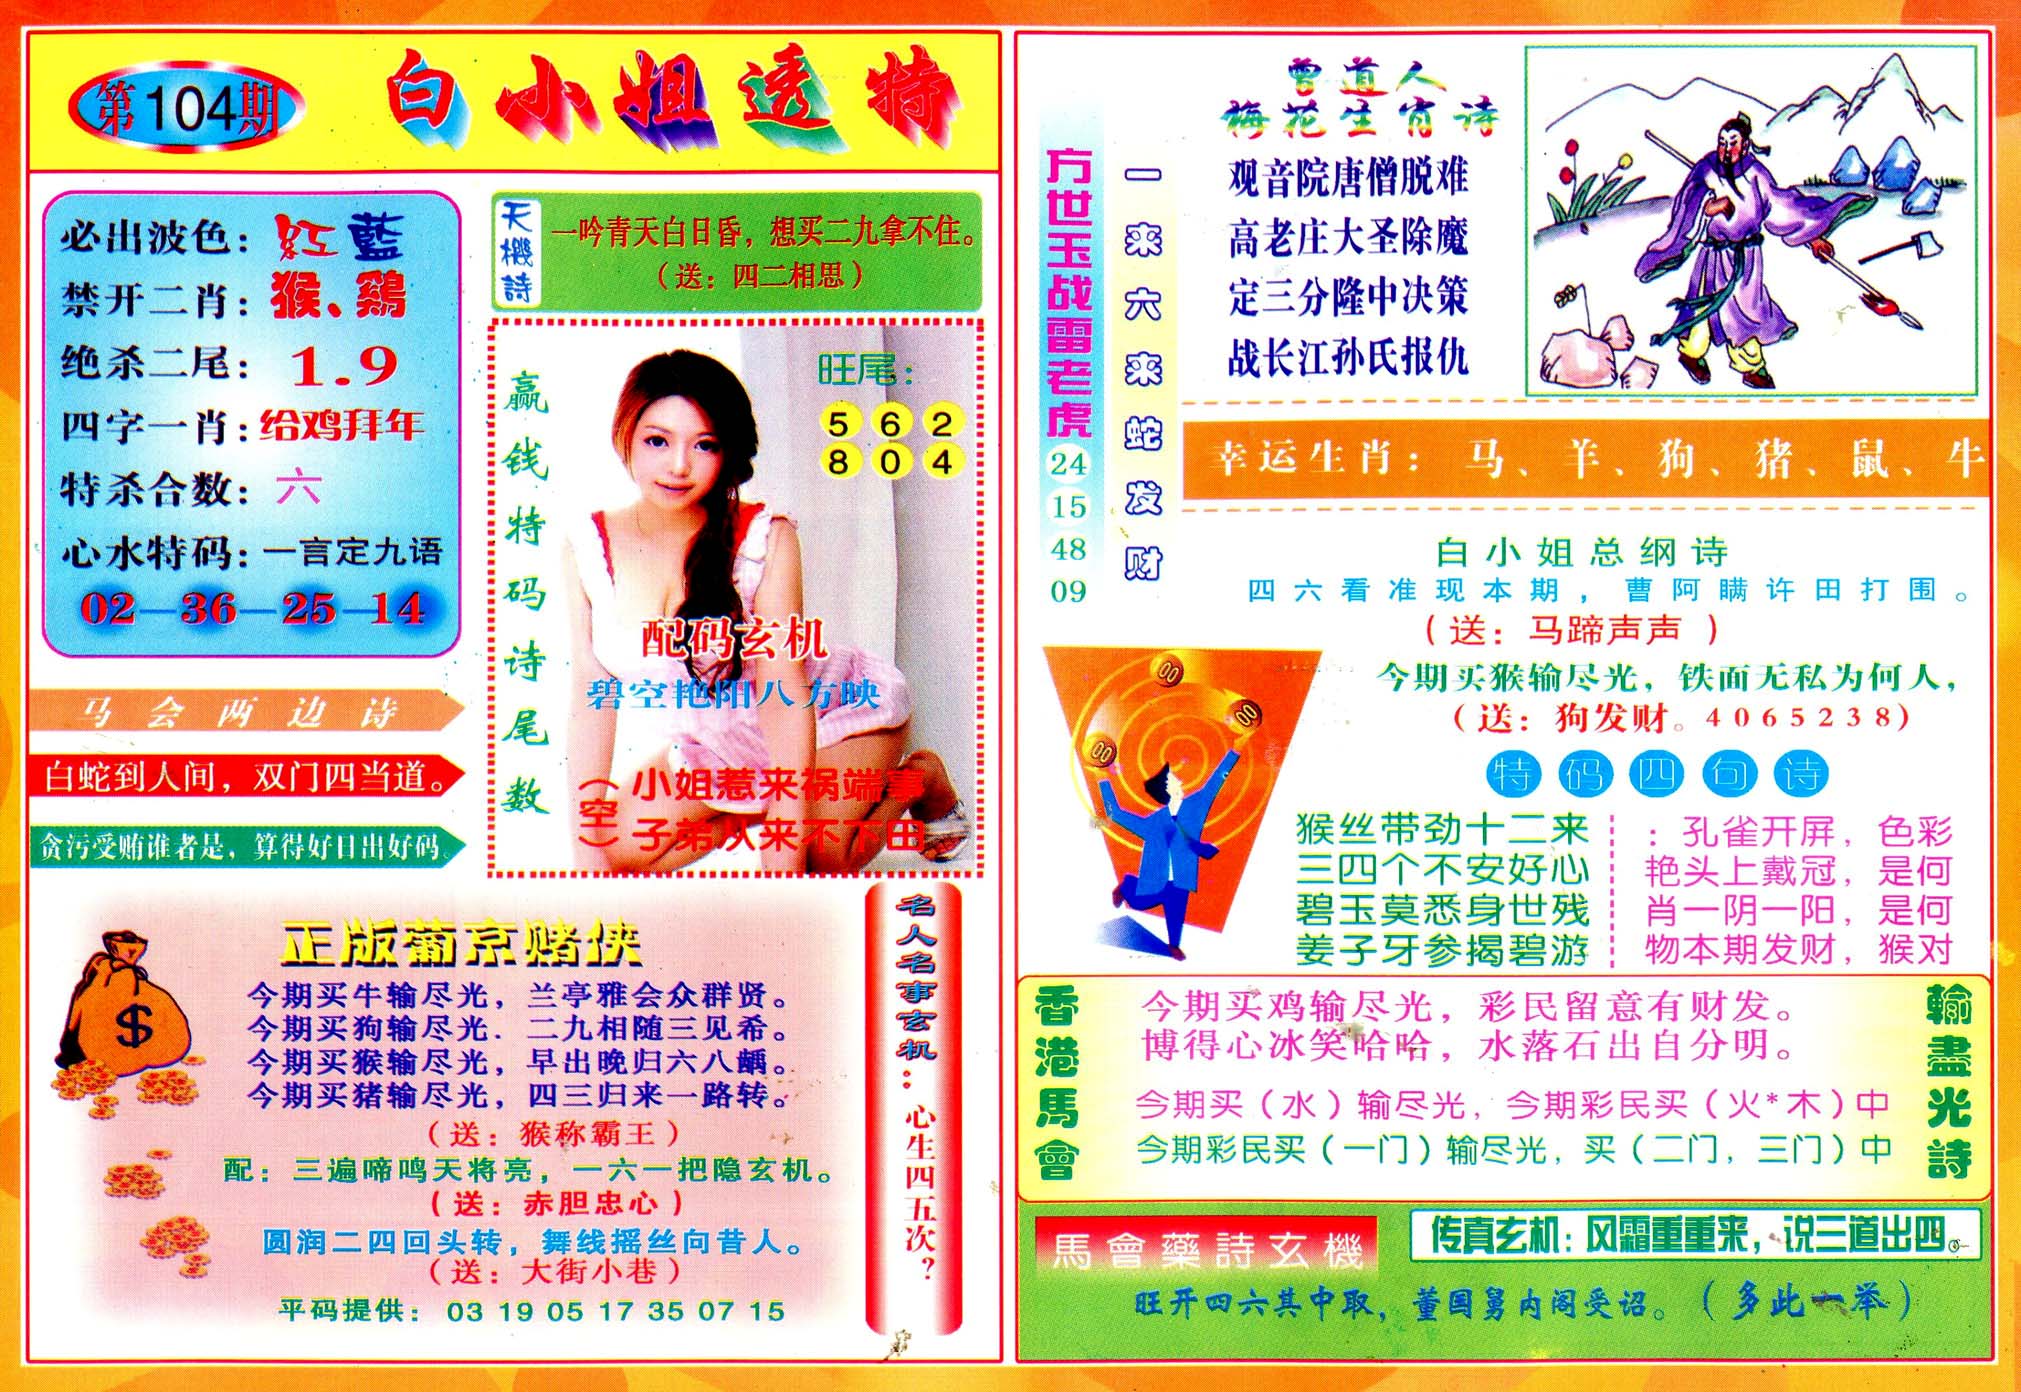 第104期
白小姐透特
必出波色：紅藍
禁开二肖：猴、鷄
绝杀二尾：1.9
四字一肖：给鸡拜年
特杀合数：六
心水特码：一言定九语
02—36—25—14
马会两边诗
白蛇到人间，双门四当道。
贪污受贿谁者是，算得好日出好码。
天機詩
一吟青天白日昏，想买二九拿不住。
（送：四二相思）
赢钱特码诗尾数
旺尾：
5 6 2
8 0 4
配码玄机
碧空艳阳八方映
（空）
小姐惹来祸端事
子弟从来不下田
正版葡京赌侠
今期买牛输尽光，兰亭雅会众群贤。
今期买狗输尽光．二九相随三见希。
今期买猴输尽光，早出晚归六八龋。
今期买猪输尽光，四三归来一路转。
（送：猴称霸王）
配：三遍啼鸣天将亮，一六一把隐玄机。
（送：赤胆忠心）
圆润二四回头转，舞线摇丝向昔人。
（送：大街小巷）
平码提供：03 19 05 17 35 07 15
名人名事玄机：心生四五次？
方世玉战雷老虎
24
15
48
09
一来六来蛇发财
曾道人
梅花生肖诗
观音院唐僧脱难
高老庄大圣除魔
定三分隆中决策
战长江孙氏报仇
幸运生肖：马、羊、狗、猪、鼠、牛
白小姐总纲诗
四六看准现本期，曹阿瞒许田打围。
（送：马蹄声声）
今期买猴输尽光，铁面无私为何人，
（送：狗发财。4065238）
特码四句诗
猴丝带劲十二来
三四个不安好心
碧玉莫悉身世残
姜子牙参揭碧游
：孔雀开屏，色彩
艳头上戴冠，是何
肖一阴一阳，是何
物本期发财，猴对
香港馬會
今期买鸡输尽光，彩民留意有财发。
博得心冰笑哈哈，水落石出自分明。
今期买（水）输尽光，今期彩民买（火*木）中
今期彩民买（一门）输尽光，买（二门，三门）中
輸盡光詩
馬會藥詩玄機
传真玄机：风霜重重来，说三道出四。
旺开四六其中取，董国舅内阁受诏。（多此一举）